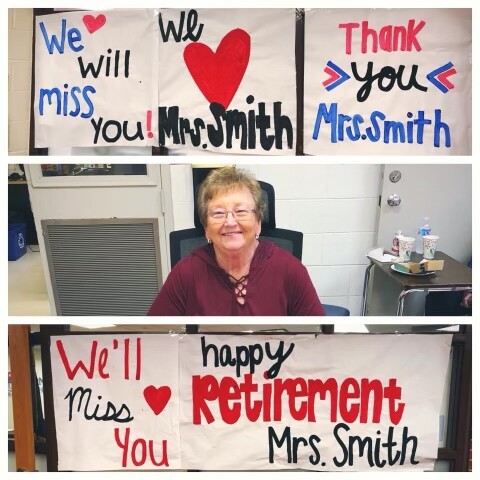 We
will
miss
you!
We
Mrs. Smith
Thank
you
Mrs. Smith
We'll
Miss
You
happy
Retirement
Mrs. Smith